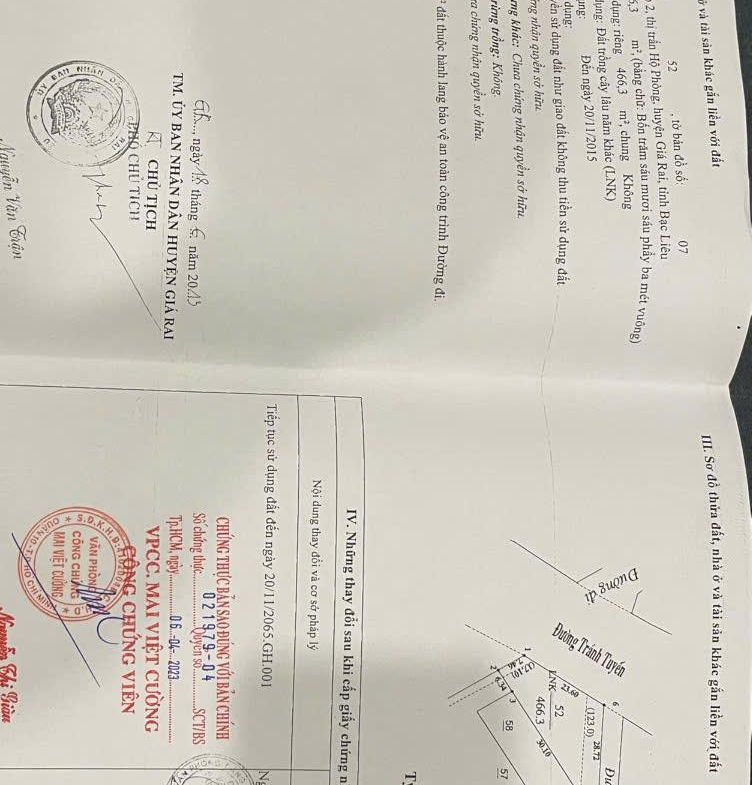 ở và tài sản khác gắn liền với đất
52 , tờ bản đồ số: 07
2, thị trấn Hộ Phòng, huyện Giá Rai, tỉnh Bạc Liêu
6,3 m², (bằng chữ: Bốn trăm sáu mươi sáu phẩy ba mét vuông)
dụng: riêng 466,3 m², chung Không
dụng: Đất trồng cây lâu năm khác (LNK)
ụng: Đến ngày 20/11/2015
dụng:
yền sử dụng đất như giao đất không thu tiền sử dụng đất
ng nhận quyền sở hữu.
ng khác: Chưa chứng nhận quyền sở hữu.
rừng trồng: Không.
a chứng nhận quyền sở hữu.
đất thuộc hành lang bảo vệ an toàn công trình Đường đi.
G.R..., ngày 18 tháng 6 năm 2013
TM. ỦY BAN NHÂN DÂN HUYỆN GIÁ RAI
KT CHỦ TỊCH
PHÓ CHỦ TỊCH
ỦY BAN NHÂN DÂ
Nguyễn Văn
III. Sơ đồ thửa đất, nhà ở và tài sản khác gắn liền với đất
Đường đi
Đường Tránh Tuyến
1
2
3
6
23.60
(123.0)
28.72
(37.10)
6.34
30.10
LNK
52
466.3
58
57
IV. Những thay đổi sau khi cấp giấy chứng n
Nội dung thay đổi và cơ sở pháp lý
Tiếp tục sử dụng đất đến ngày 20/11/2065.GH.001
CHỨNG THỰC BẢN SAO ĐÚNG VỚI BẢN CHÍNH
Số chứng thực 021979-04 Quyển số SCT/BS
Tp.HCM, ngày 06-04-2023
VPCC. MAI VIỆT CƯỜNG
CÔNG CHỨNG VIÊN
VĂN PHÒNG
CÔNG CHỨNG
MAI VIỆT CƯỜNG
TP HỒ CHÍ MINH
Nguyễn Thị